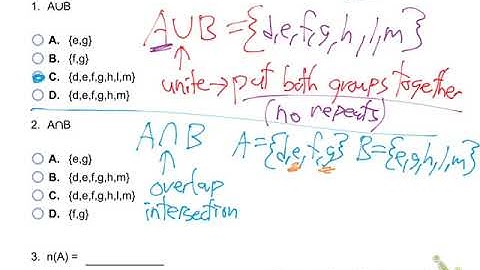 1. A∪B
A∪B = {d,e,f,g,h,l,m}
A. {e,g}
B. {f,g}
C. {d,e,f,g,h,l,m}
D. {d,e,f,g,h,m}
unite→put both groups together
(no repeats)
2. A∩B
A∩B A={d,e,f,g} B={e,g,h,l,m}
A. {e,g}
B. {d,e,f,g,h,m}
C. {d,e,f,g,h,l,m}
D. {f,g}
overlap
intersection
3. n(A) =